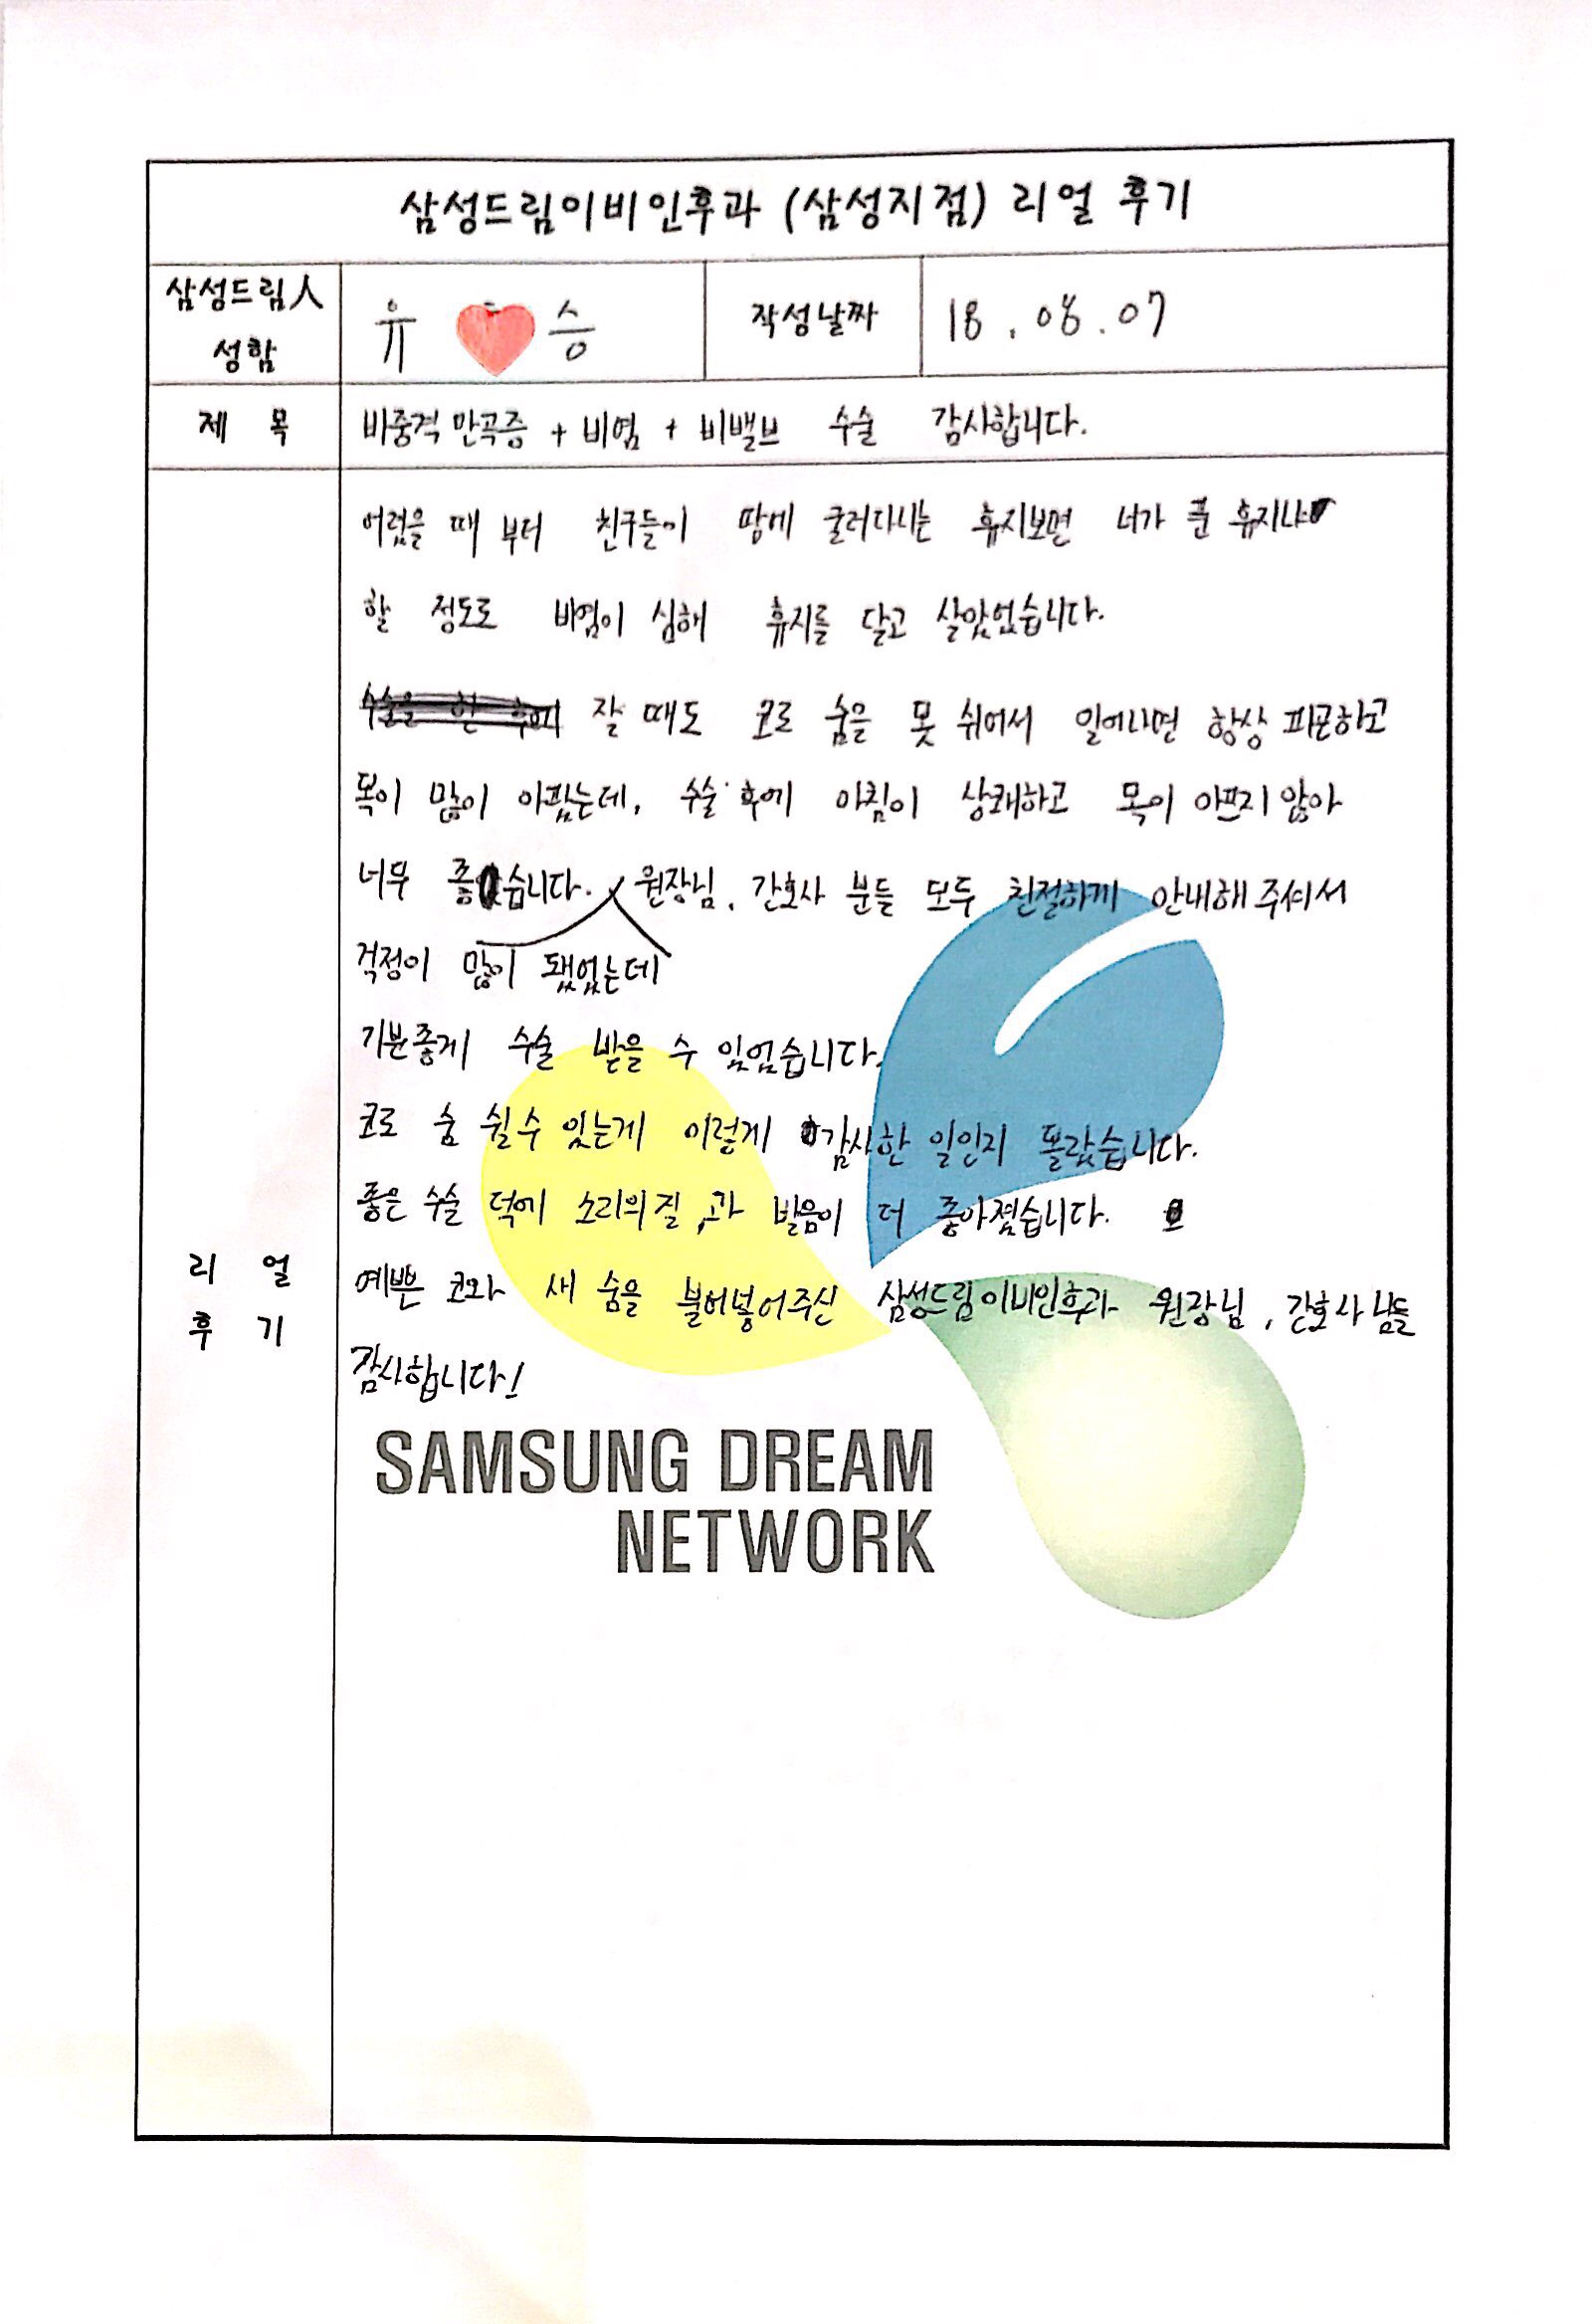 삼성드림이비인후과 (삼성지점) 리얼 후기
삼성드림人
성함
유 ♥ 승
작성날짜
18.08.07
제 목
비중격 만곡증 + 비염 + 비밸브 수술 감사합니다.
어렸을 때 부터 친구들이 땅에 굴러다니는 휴지보면 너가 푼 휴지냐
할 정도로 비염이 심해 휴지를 달고 살았었습니다.
수술을 한 후에 잘 때도 코로 숨을 못 쉬어서 일어나면 항상 피곤하고
목이 많이 아팠는데, 수술 후에 아침이 상쾌하고 목이 아프지 않아
너무 좋습니다. 원장님, 간호사 분들 모두 친절하게 안내해 주셔서
걱정이 많이 됐었는데
기분좋게 수술 받을 수 있었습니다.
코로 숨 쉴수 있는게 이렇게 감사한 일인지 몰랐습니다.
좋은 수술 덕에 소리의 질,과 발음이 더 좋아졌습니다.
예쁜 코와 새 숨을 불어넣어주신 삼성드림이비인후과 원장님, 간호사님들
감사합니다!
리 얼
후 기
SAMSUNG DREAM
NETWORK